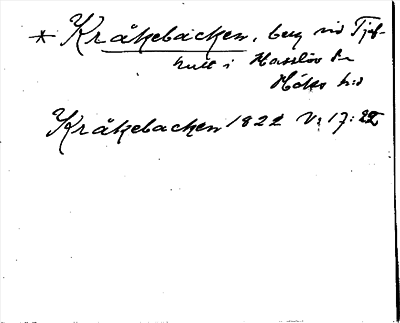 * Kråkebacken, berg vid Tjuf-
hult i Hasslöv sn
Höks hd
Kråkebacken 1822 V: 17: 22